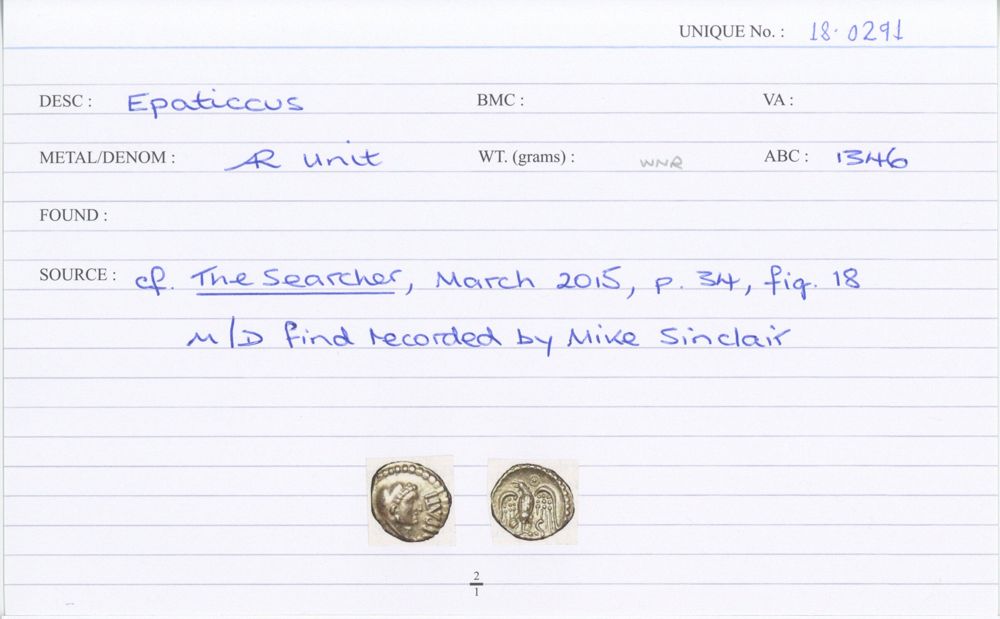 UNIQUE No. : 18·0291
DESC : Epaticcus BMC : VA :
METAL/DENOM : AR Unit WT. (grams) : WNR ABC : 1346
FOUND :
SOURCE : cf. The Searcher, March 2015, p. 34, fig. 18
M/D find recorded by Mike Sinclair
2
1